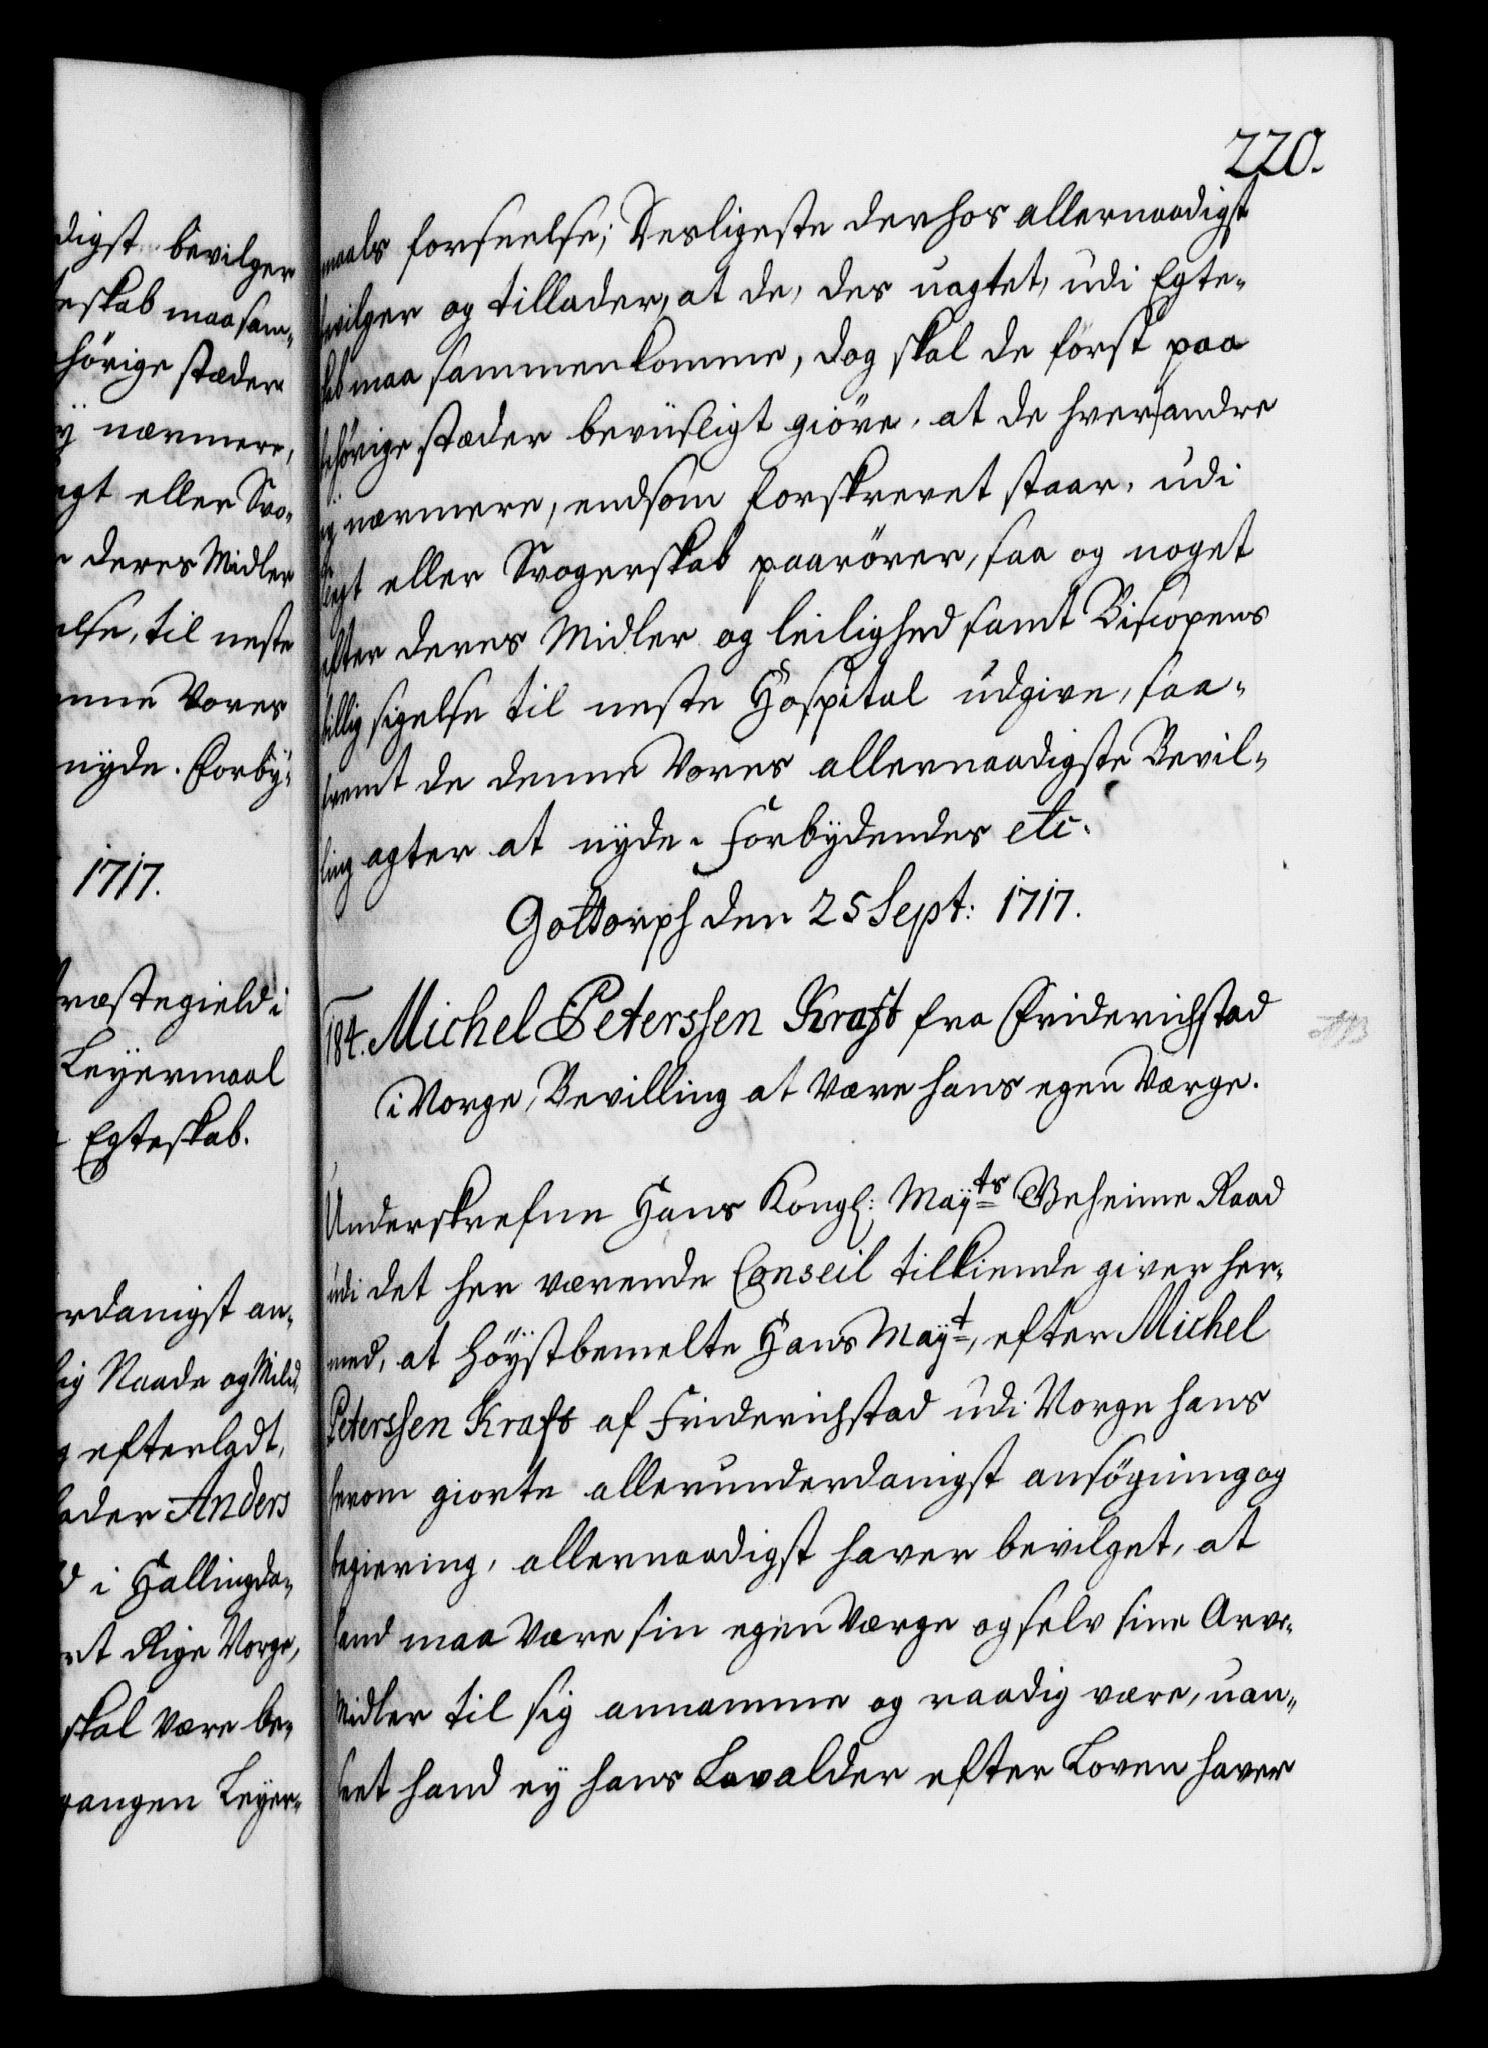 220.
digst bevilger
eskab maa sam¬
hörige stæder
ÿ nærmere,
egt eller Svo¬
r deres Midler
else, til neste
nne Vores
nyde. Forbÿ¬
1717.
Præstegield i
Leyermaal
Egteskab.
rdanigst an¬
lig Naade og Mild¬
g efterladt,
lader Anders
d i Hallingda¬
rt Rige Norge,
skal være be¬
gangen Leyer¬
maals forseelse; Desligeste derhos allernaadigst
bevilger og tillader, at de, des uagtet, udi Egte¬
skab maa sammenkomme, dog skal de först paa
behörige stæder beviisligt giöre, at de hver andre
ey nærmere, end som forskrevet staar, udi
Slegt eller Svogerskab paarörer, saa og noget
efter deres Midler og leilighed samt Biscopens
billig sigelse til neste Hospital udgive, saa¬
fremt de denne Vores allernaadigste Bevil¬
ling agter at nyde. Forbydendes etc.
Gottorph den 25 Sept: 1717.
184. Michel Peterssen Kraft fra Friderichstad
i Norge, Bevilling at være hans egen Værge.
Underskrefne Hans Kongl: Maÿts Geheime Raad
udi det her værende Conseil tilkiende giver her¬
med, at Höÿstbemelte Hans Maÿt, efter Michel
Peterssen Kraft af Friderichstad udi Norge hans
herom giorte allerunderdanigst ansögning og
begiering, allernaadigst haver bevilget, at
hand maa være sin egen Værge og selv sine Arve¬
Midler til sig annamme og raadig være, uan¬
seet hand ey hans Lavalder efter Loven haver